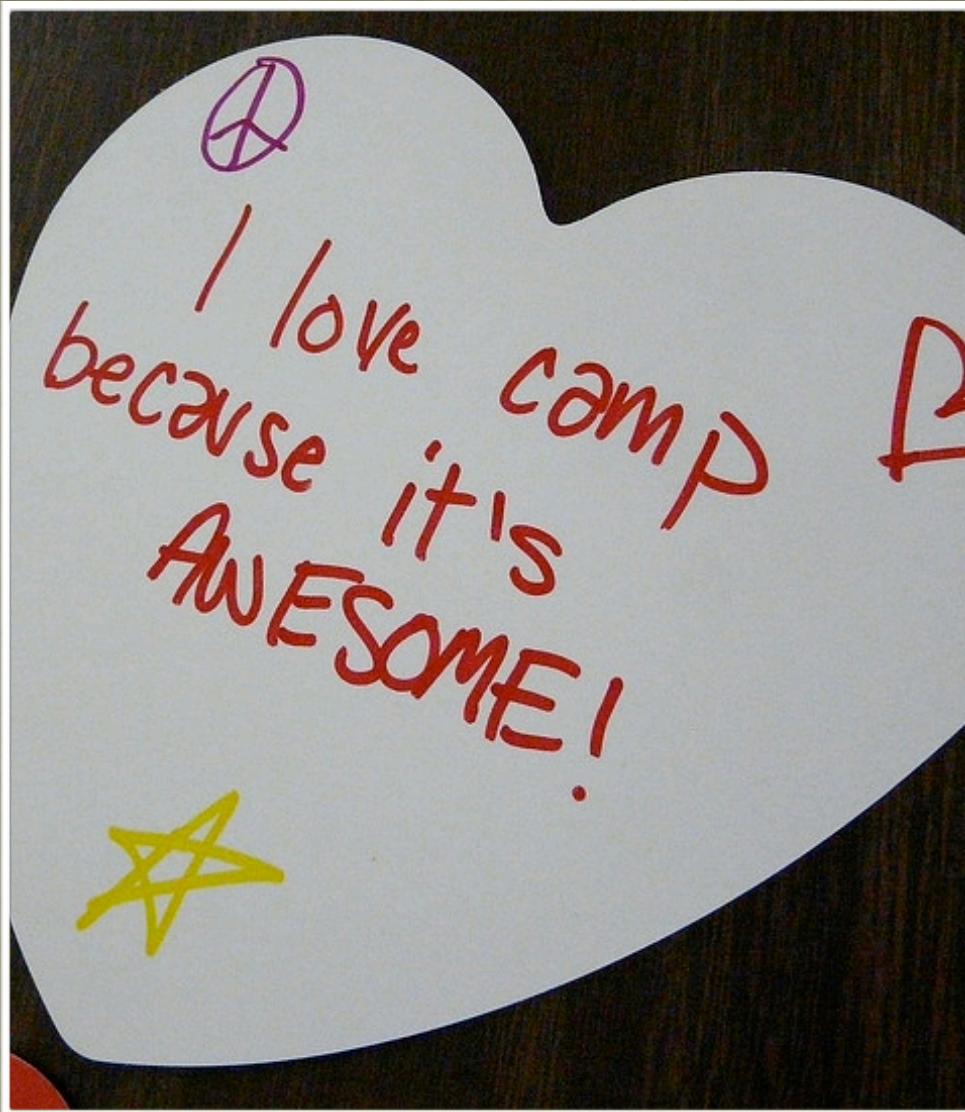 I love camp
because it's
AWESOME!